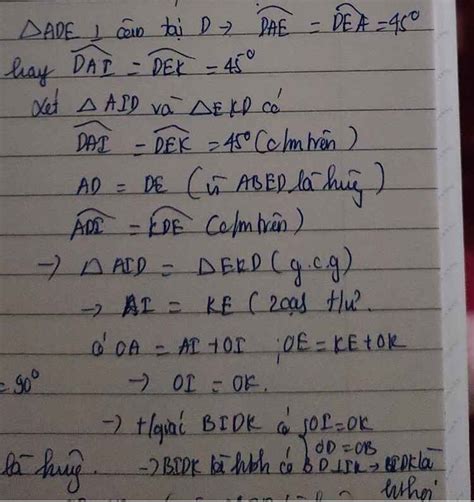 △ADE ⊥ cân tại D → DAE = DEA = 45°
hay DAI = DEK = 45°
Xét △AID và △EKD có
DAI = DEK = 45° (c/m trên)
AD = DE (vì ABED là hvg)
ADI = KDE (c/m trên)
→ △AID = △EKD (g.c.g)
→ AI = KE (2 cạs t/ư)
có OA = AI + OI ; OE = KE + OK
= 90° → OI = OK.
→ t/giác BIDK có OI = OK
OD = OB
là hvg. → BIDK là hbh có BD ⊥ IK → BIDK là
hthoi